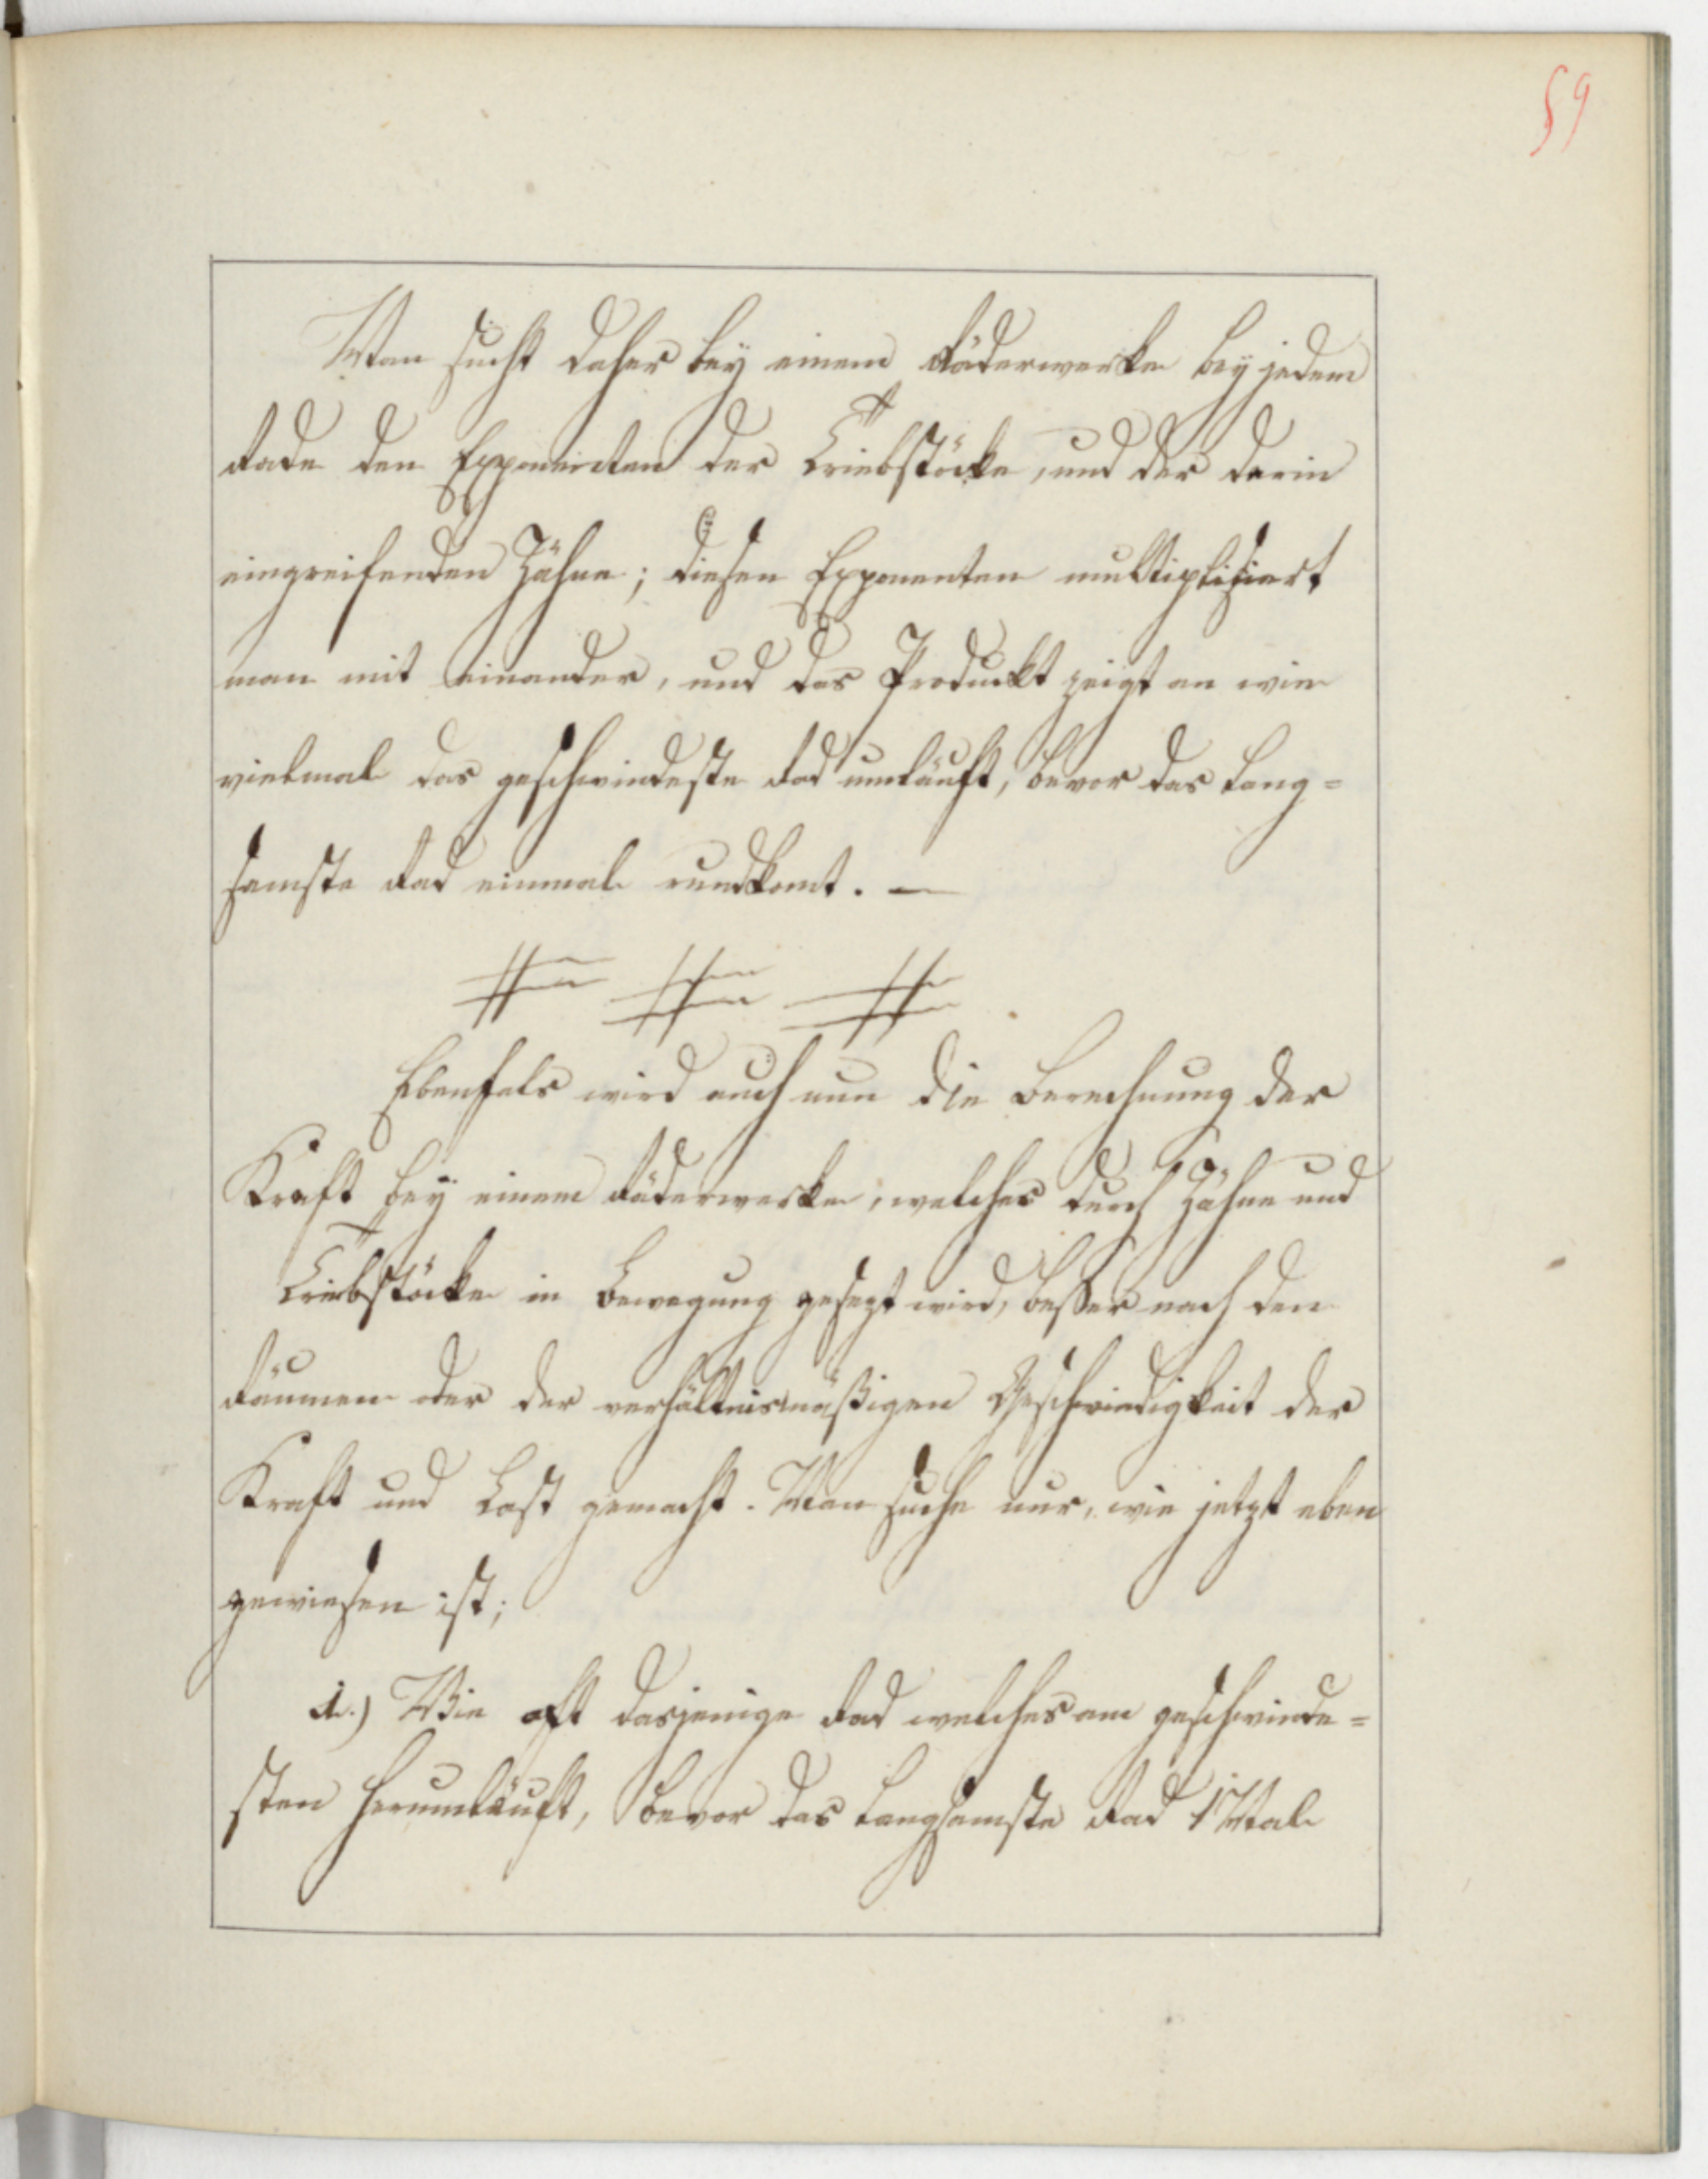 59
Man sucht daher bey einem Räderwerke bey jedem
Rade den Exponenten der Triebstöcke, und der darin
eingreifenden Zähne; diesen Exponenten multiplisiert
man mit einander, und das Produckt zeigt an wie
vielmal das geschwindeste Rad umläuft, bevor das lang=
samste Rad einmal rundkomt. —
Ebenfals wird auch nun die Berechnung der
Kraft bey einem Räderwerke, welches durch Zähne und
Triebstöcke in Bewegung gesezt wird, besser nach den
Räumen oder der verhältnismäßigen Geschwindigkeit der
Kraft und Last gemacht. Man suche nur, wie jetzt eben
gewiesen ist;
1.) Wie oft dasjenige Rad welches am geschwinde=
sten herumläuft, bevor das langsamste Rad 1 Mal